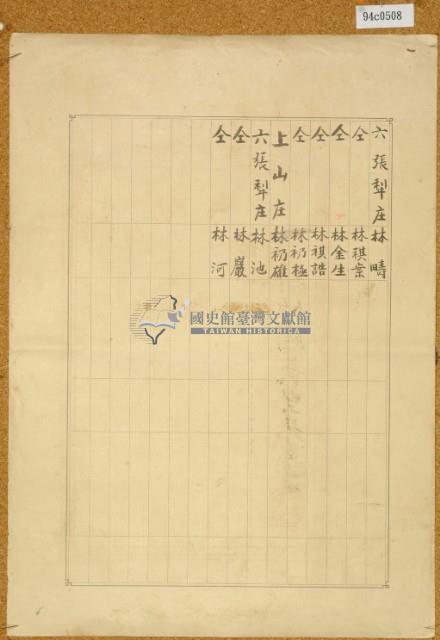 94c0508
六張犁庄 林晴
仝 林祺案
仝 林金生
仝 林祺誥
仝 林礽極
上山庄 林礽雄
六張犁庄 林池
仝 林巖
仝 林河
國史館臺灣文獻館
TAIWAN HISTORICA